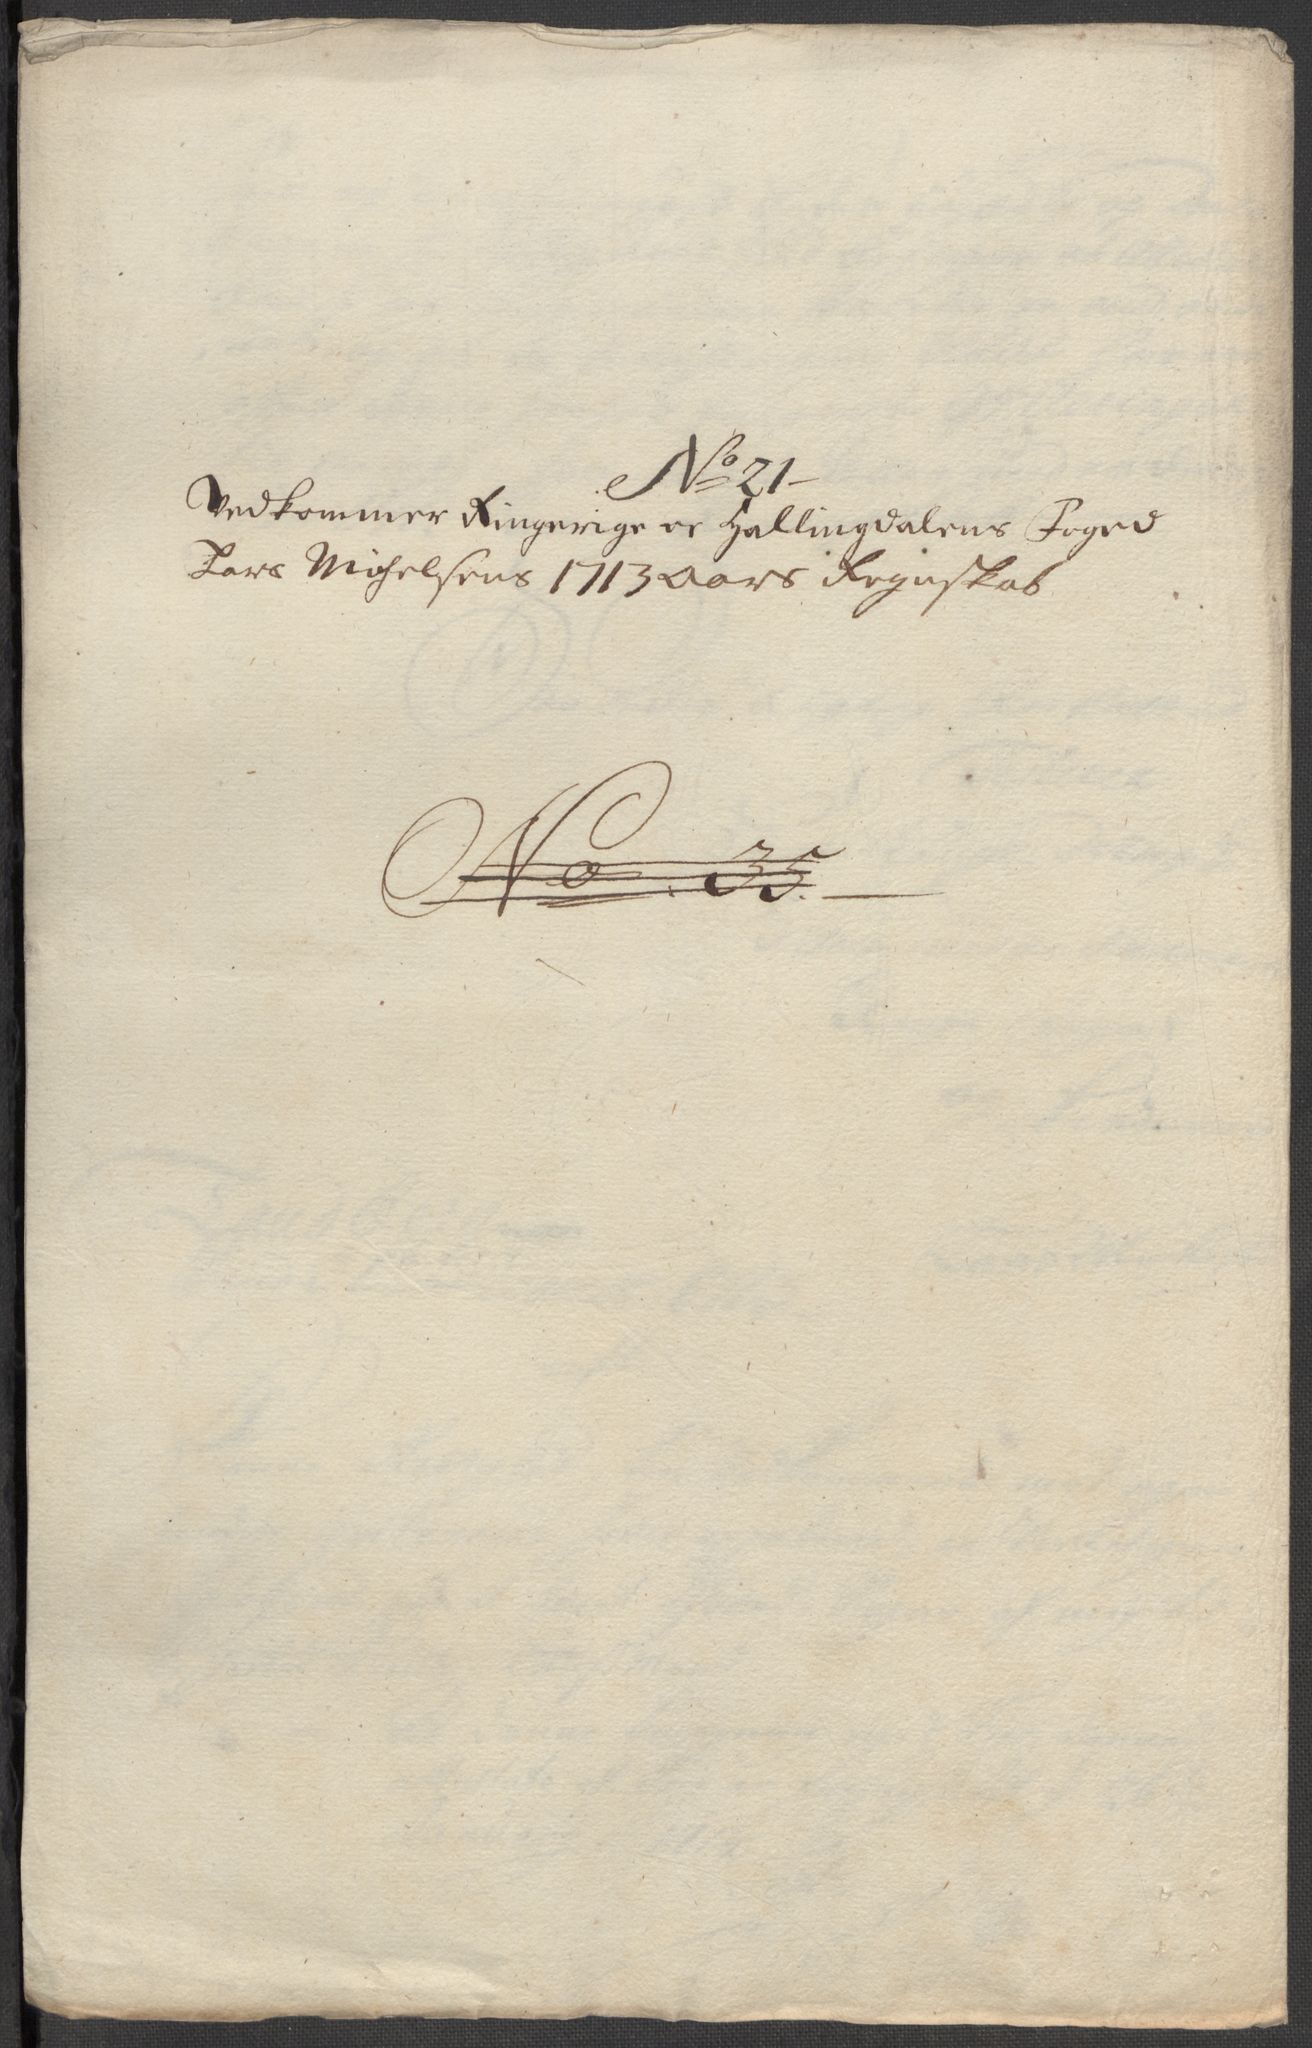 No 21-
Vedkommer Ringerige oc Hallingdalens Foged
Lars Michelsens 1713 Aars Regnskab
No. 35.